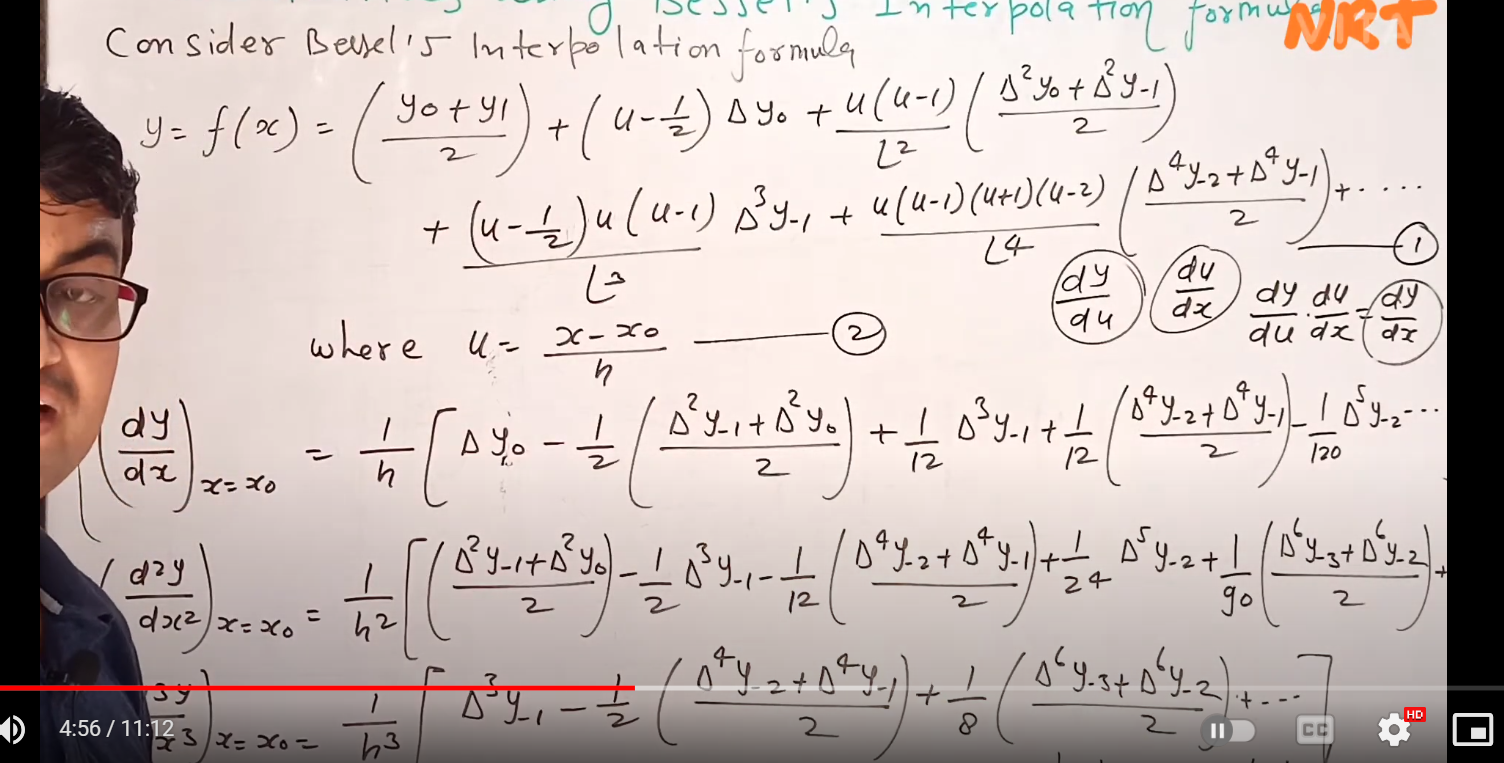 Bessel's Interpolation formula NRT
Consider Bessel's Interpolation formula
y = f(x) = ((y₀ + y₁)/2) + (u - 1/2) Δy₀ + u(u-1)/∟2 ((Δ²y₀ + Δ²y₋₁)/2)
+ (u - 1/2)u(u-1)/∟3 Δ³y₋₁ + u(u-1)(u+1)(u-2)/∟4 ((Δ⁴y₋₂ + Δ⁴y₋₁)/2) + .... ①
dy/du du/dx dy/du · du/dx = dy/dx
where u = (x - x₀)/h ②
(dy/dx)ₓ₌ₓ₀ = 1/h [Δy₀ - 1/2 ((Δ²y₋₁ + Δ²y₀)/2) + 1/12 Δ³y₋₁ + 1/12 ((Δ⁴y₋₂ + Δ⁴y₋₁)/2) - 1/120 Δ⁵y₋₂ ...
(d²y/dx²)ₓ₌ₓ₀ = 1/h² [((Δ²y₋₁ + Δ²y₀)/2) - 1/2 Δ³y₋₁ - 1/12 ((Δ⁴y₋₂ + Δ⁴y₋₁)/2) + 1/24 Δ⁵y₋₂ + 1/90 ((Δ⁶y₋₃ + Δ⁶y₋₂)/2) +
3y/x³)ₓ₌ₓ₀ = 1/h³ [Δ³y₋₁ - 1/2 ((Δ⁴y₋₂ + Δ⁴y₋₁)/2) + 1/8 ((Δ⁶y₋₃ + Δ⁶y₋₂)/2) + ...]
4:56 / 11:12 CC HD